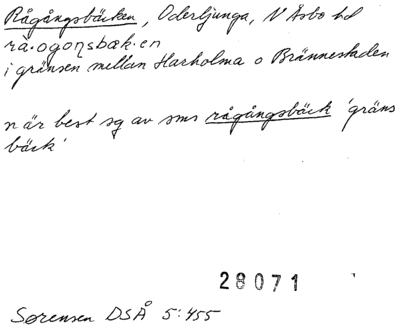 Rågångsbäcken, Oderljunga, N Åsbo hd
rå.ogoŋsbæk.en
i gränsen mellan Harholma o Brännestaden
n är best sg av sms rågångsbäck 'gräns
bäck'
28071
Sørensen DSÅ 5:455